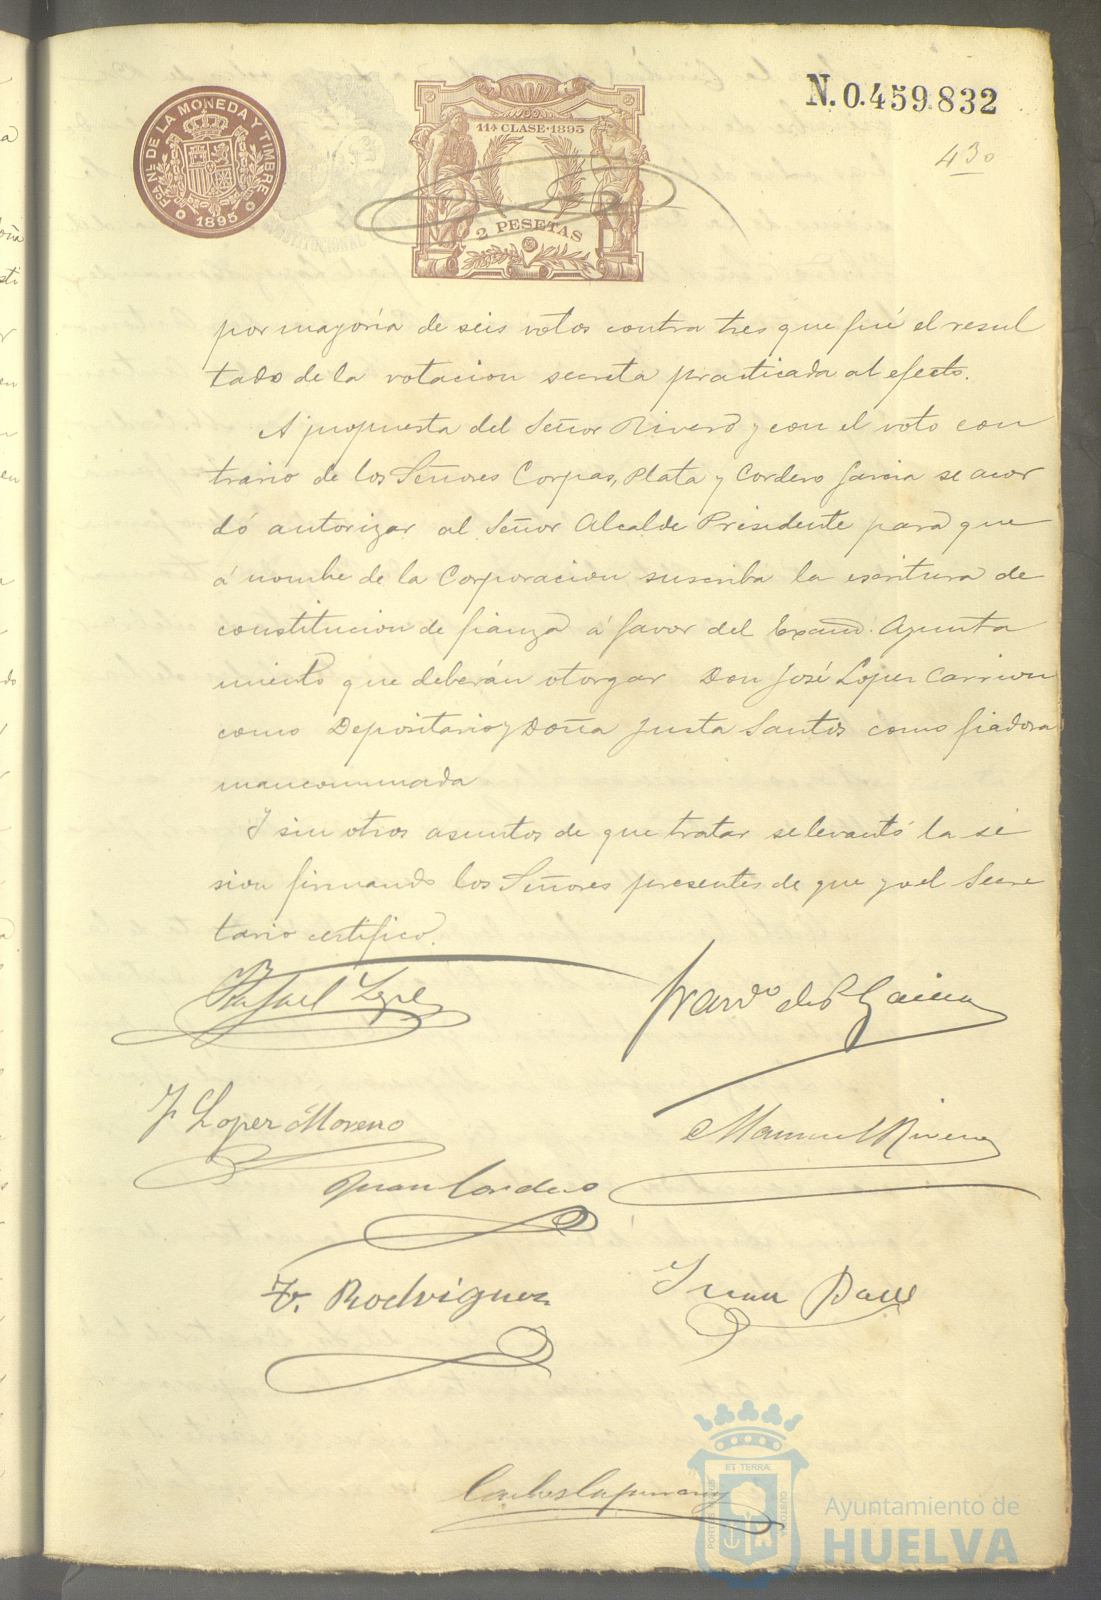 FCA. NL. DE LA MONEDA Y TIMBRE
1895
11ª CLASE·1895
2 PESETAS
N.0.459.832
430
por mayoría de seis votos contra tres que fué el resul
tado de la votacion secreta practicada al efecto.
A propuesta del Señor Rivero y con el voto con
trario de los Señores Corpas, Plata y Cordero Garcia se acor
dó autorizar al Señor Alcalde Presidente para que
á nombre de la Corporacion suscriba la escritura de
constitucion de fianza á favor del Excmo. Ayunta
miento que deberán otorgar Don José Lopez Carrion
como Depositario y Doña Justa Santos como fiadora
mancomunada
Y sin otros asuntos de que tratar se levantó la se
sion firmando los Señores presentes de que yo el Secre
tario certifico.
Rafael Lopez
Franco de P Garcia
J Lopez Moreno
Manuel Rivero
Juan Cordero
F. Rodriguez
Juan
Carlos
ET TERRÆ
Ayuntamiento de
HUELVA